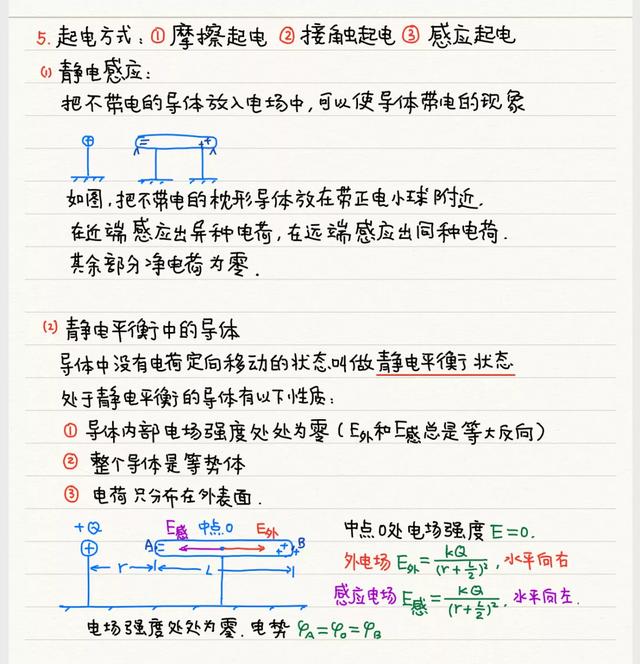 5. 起电方式: ① 摩擦起电 ② 接触起电 ③ 感应起电
(1) 静电感应:
把不带电的导体放入电场中, 可以使导体带电的现象
+ = ++
如图, 把不带电的枕形导体放在带正电小球附近.
在近端感应出异种电荷, 在远端感应出同种电荷.
其余部分净电荷为零.
(2) 静电平衡中的导体
导体中没有电荷定向移动的状态叫做静电平衡状态
处于静电平衡的导体有以下性质:
① 导体内部电场强度处处为零 (E外和E感总是等大反向)
② 整个导体是等势体
③ 电荷只分布在外表面.
+Q E感 中点O E外
+ A = ++ B
r L
中点O处电场强度 E=0.
外电场 E外=kQ/(r+L/2)², 水平向右
感应电场 E感=kQ/(r+L/2)², 水平向左.
电场强度处处为零. 电势 φA=φO=φB